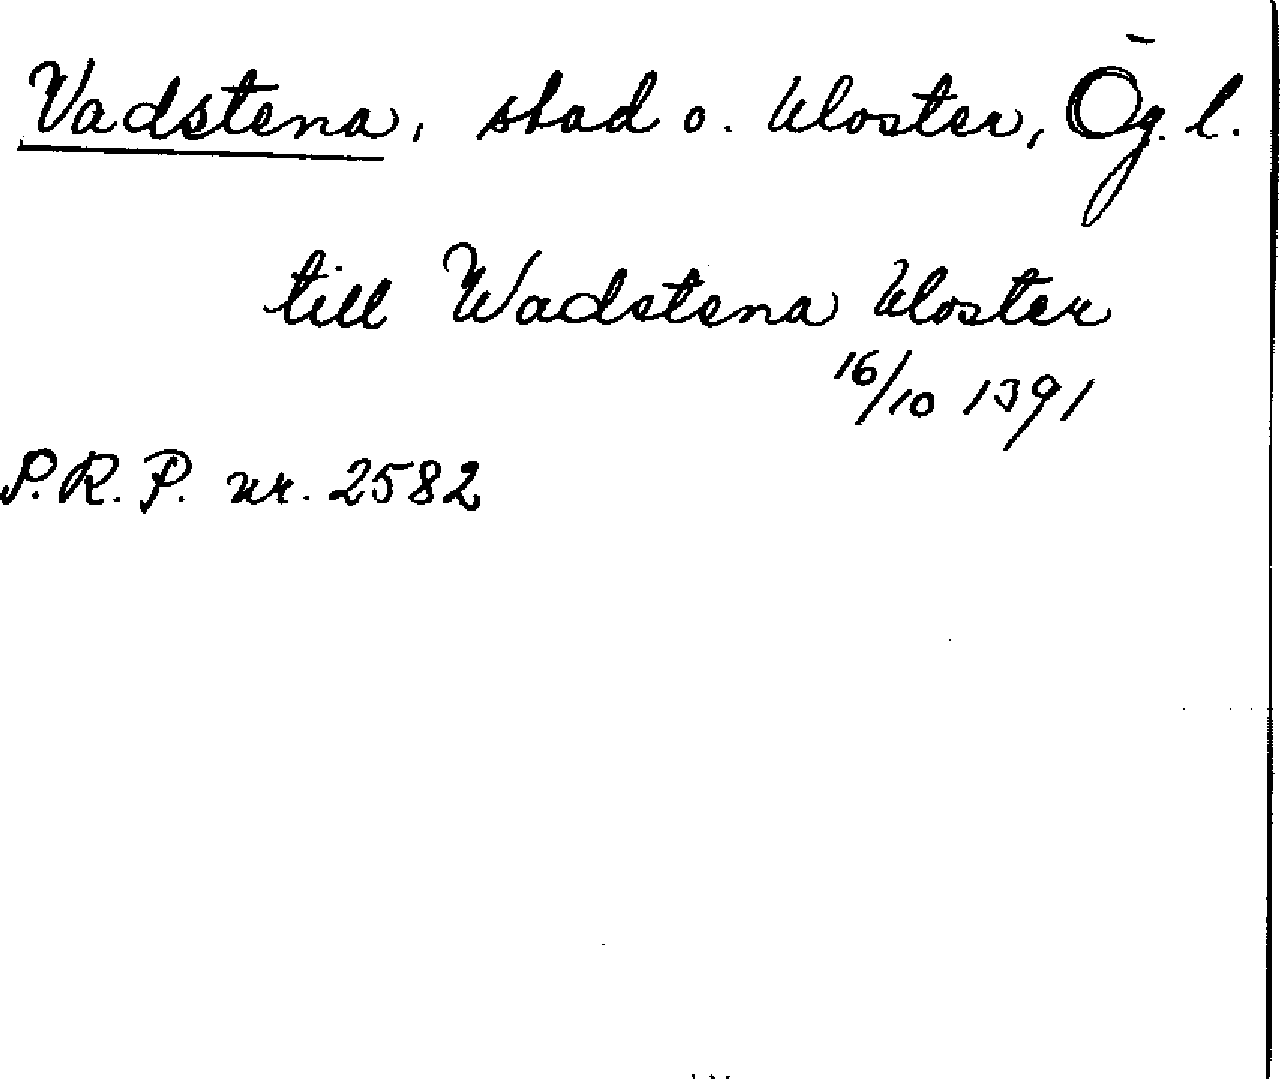 Vadstena, stad o. kloster, Ög. l.
till Wadstena kloster
16/10 1391
P.R.P. nr. 2582